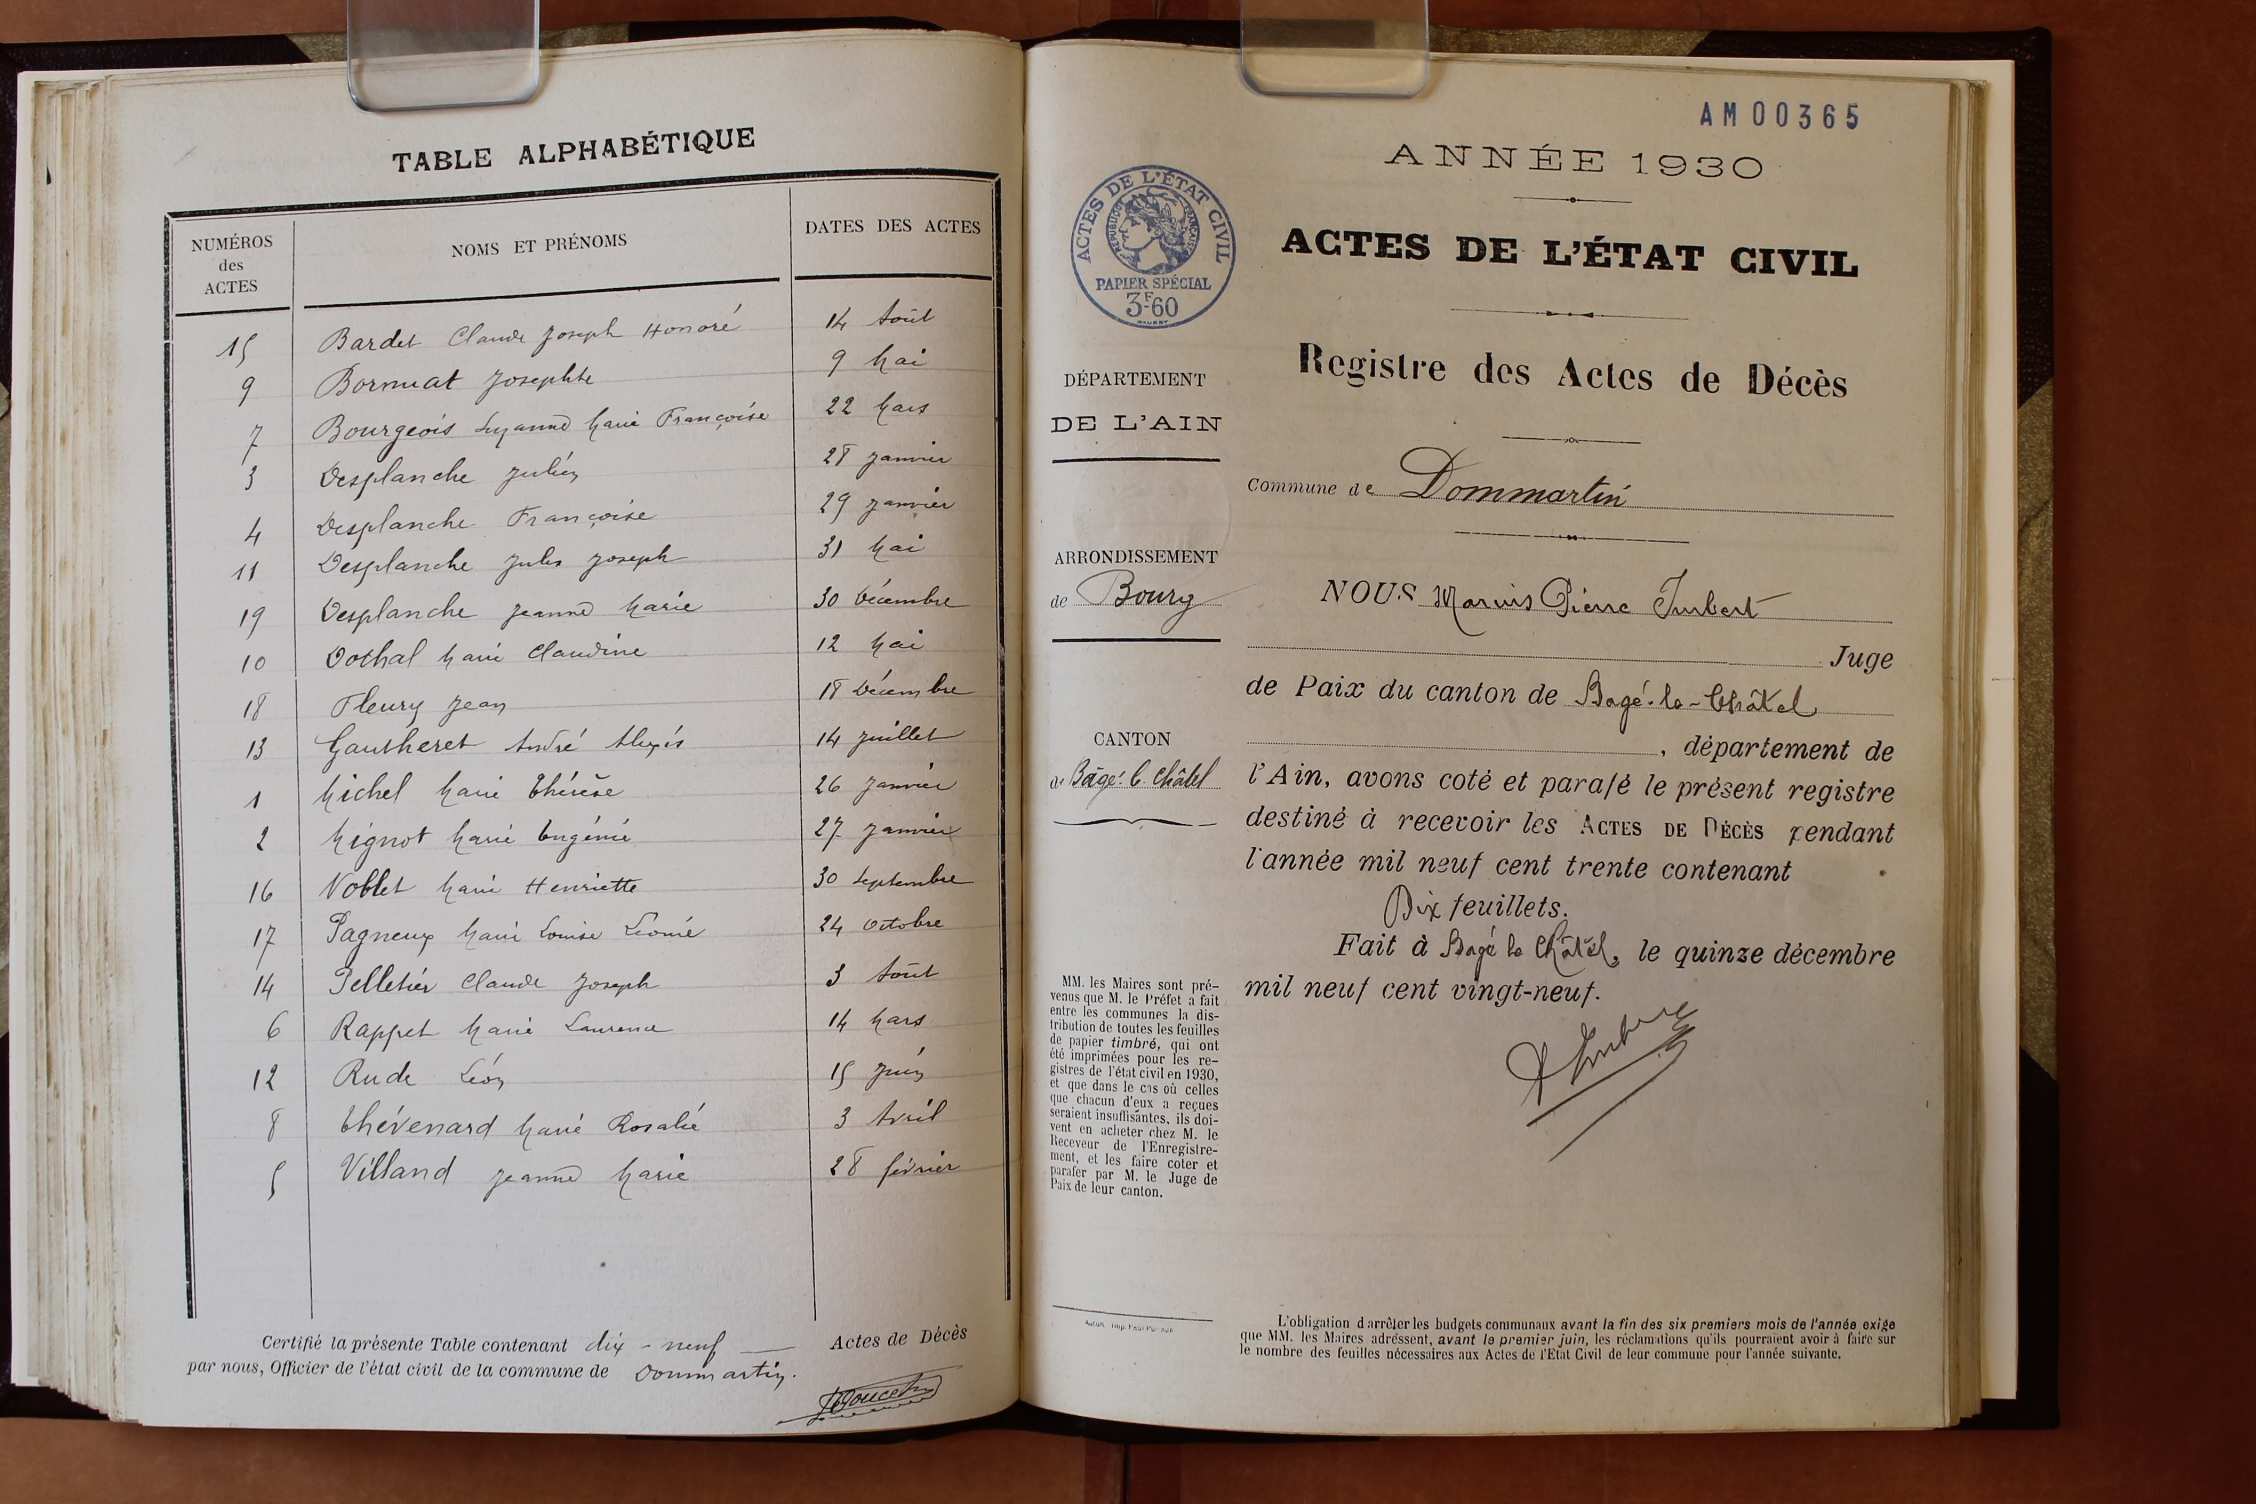 TABLE ALPHABÉTIQUE
NUMÉROS des ACTES NOMS ET PRÉNOMS DATES DES ACTES
15 Bardet Claude Joseph Honoré 14 Août
9 Bornuat Josephte 9 Mai
7 Bourgeois Suzanne Marie Françoise 22 Mars
3 Desplanche Julien 28 janvier
4 Desplanche Françoise 29 janvier
11 Desplanche Jules Joseph 31 Mai
19 Desplanche Jeanne Marie 30 Décembre
10 Dothal Marie Claudine 12 Mai
18 Fleury Jean 18 Décembre
13 Gautheret André Alexis 14 juillet
1 Michel Marie Thérèse 26 janvier
2 Mignot Marie Eugénie 27 janvier
16 Noblet Marie Henriette 30 Septembre
17 Pagneux Marie Louise Léonie 24 Octobre
14 Pelletier Claude Joseph 3 Août
6 Rappet Marie Laurence 14 Mars
12 Rude Léon 15 Juin
8 Thévenard Marie Rosalie 3 Avril
5 Villand Jeanne Marie 28 février
Certifié la présente Table contenant dix-neuf Actes de Décès
par nous, Officier de l'état civil de la commune de Dommartin.
AM00365
ANNÉE 1930
ACTES DE L'ÉTAT CIVIL
RÉPUBLIQUE FRANÇAISE
PAPIER SPÉCIAL
3F60
ACTES DE L'ÉTAT CIVIL
Registre des Actes de Décès
DÉPARTEMENT
DE L'AIN
Commune de Dommartin
ARRONDISSEMENT
de Bourg
NOUS Marius Pierre Imbert
Juge
de Paix du canton de Bagé-le-Châtel
, département de
CANTON
de Bâgé-l-Châtel
l'Ain, avons coté et parafé le présent registre
destiné à recevoir les ACTES DE DÉCÈS pendant
l'année mil neuf cent trente contenant
Dix feuillets.
Fait à Bagé le Châtel, le quinze décembre
mil neuf cent vingt-neuf.
MM. les Maires sont pré-
venus que M. le Préfet a fait
entre les communes la dis-
tribution de toutes les feuilles
de papier timbré, qui ont
été imprimées pour les re-
gistres de l'état civil en 1930,
et que dans le cas où celles
que chacun d'eux a reçues
seraient insuffisantes, ils doi-
vent en acheter chez M. le
Receveur de l'Enregistre-
ment, et les faire coter et
parafer par M. le Juge de
Paix de leur canton.
L'obligation d'arrêter les budgets communaux avant la fin des six premiers mois de l'année exige
que MM. les Maires adressent, avant le premier juin, les réclamations qu'ils pourraient avoir à faire sur
le nombre des feuilles nécessaires aux Actes de l'Etat Civil de leur commune pour l'année suivante.